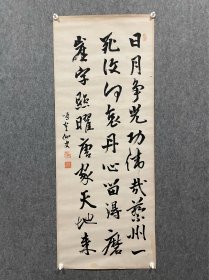 日月争光功伟哉蔡州一
死后何哀丹心留得磨
崖字照曜唐家天地来